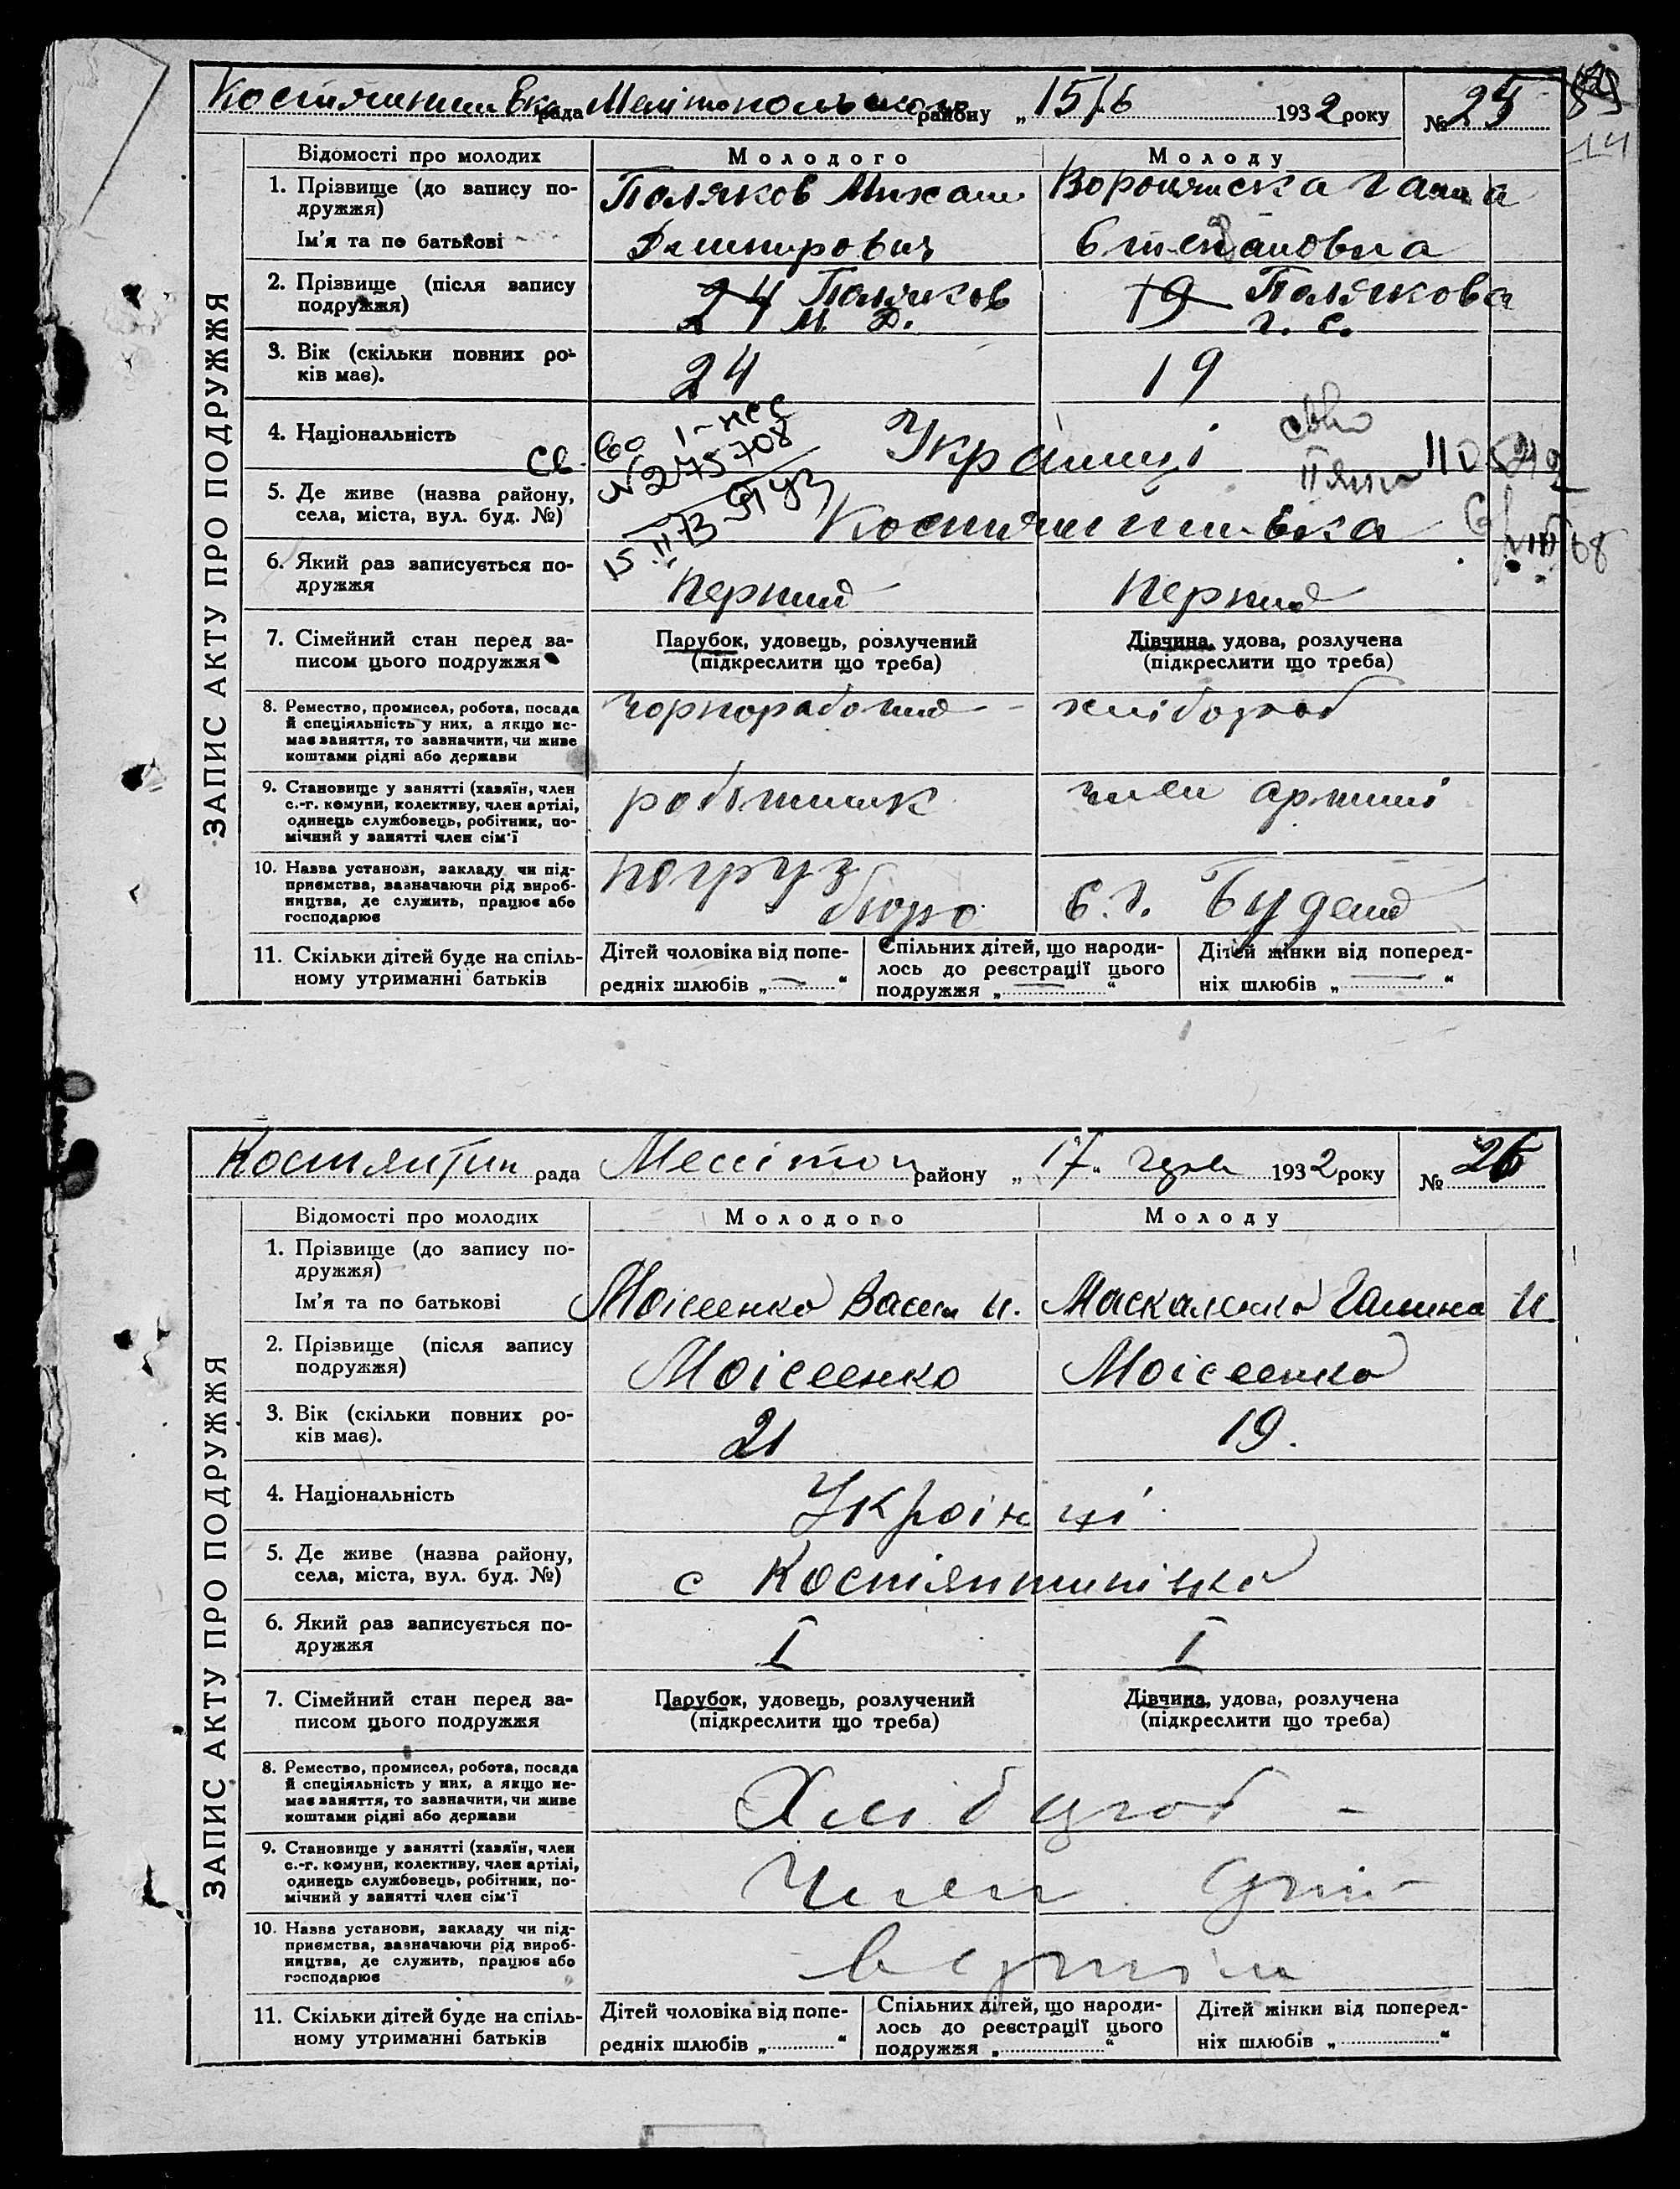 рада Мелітопольског району „ 15/6 1932 року № 25
14
ЗАПИС АКТУ ПРО ПОДРУЖЖЯ
Відомості про молодих Молодого Молоду
1. Прізвище (до запису по-
дружжя)
Поляков Михаил Ганна
Ім'я та по батькові
Степановна
2. Прізвище (після запису
подружжя)
24 Поляков 19 Полякова
М. Д. Г. С.
3. Вік (скільки повних ро-
ків має).
24 19
4. Національність
Українці
Св. 1-нее
№ 275708
15.II 73
5. Де живе (назва району,
села, міста, вул. буд. №)
6. Який раз записується по-
дружжя
Перший Перший
7. Сімейний стан перед за-
писом цього подружжя
Парубок, удовець, розлучений Дівчина, удова, розлучена
(підкреслити що треба) (підкреслити що треба)
8. Ремество, промисел, робота, посада
й спеціяльність у них, а якщо не-
має заняття, то зазначити, чи живе
коштами рідні або держави
чорноробочий хлібороб
9. Становище у занятті (хазяїн, член
с.-г. комуни, колективу, член артілі,
одинець службовець, робітник, по-
мічний у занятті член сім'ї
робітник член артилі
10. Назва установи, закладу чи під-
приємства, зазначаючи рід вироб-
ництва, де служить, працює або
господарює
погруз
бюро
11. Скільки дітей буде на спіль-
ному утриманні батьків
Дітей чоловіка від попе-
редніх шлюбів „ — “
Спільних дітей, що народи-
лось до реєстрації цього
подружжя „ — “
Дітей жінки від поперед-
ніх шлюбів „ — “
Костянтин рада Мелітоп району „ 17 „ черв 1932 року № 26
ЗАПИС АКТУ ПРО ПОДРУЖЖЯ
Відомості про молодих Молодого Молоду
1. Прізвище (до запису по-
дружжя)
Ім'я та по батькові
Моісеенко Васил И. Маскаленко Галина И.
2. Прізвище (після запису
подружжя)
Моісеенко Моісеенко
3. Вік (скільки повних ро-
ків має).
21 19.
4. Національність
Україн ці
5. Де живе (назва району,
села, міста, вул. буд. №)
с Костянтинівка
6. Який раз записується по-
дружжя
I I
7. Сімейний стан перед за-
писом цього подружжя
Парубок, удовець, розлучений Дівчина, удова, розлучена
(підкреслити що треба) (підкреслити що треба)
8. Ремество, промисел, робота, посада
й спеціяльність у них, а якщо не-
має заняття, то зазначити, чи живе
коштами рідні або держави
Хлібороб -
9. Становище у занятті (хазяїн, член
с.-г. комуни, колективу, член артілі,
одинець службовець, робітник, по-
мічний у занятті член сім'ї
Член
10. Назва установи, закладу чи під-
приємства, зазначаючи рід вироб-
ництва, де служить, працює або
господарює
11. Скільки дітей буде на спіль-
ному утриманні батьків
Дітей чоловіка від попе-
редніх шлюбів „ “
Спільних дітей, що народи-
лось до реєстрації цього
подружжя „ “
Дітей жінки від поперед-
ніх шлюбів „ “